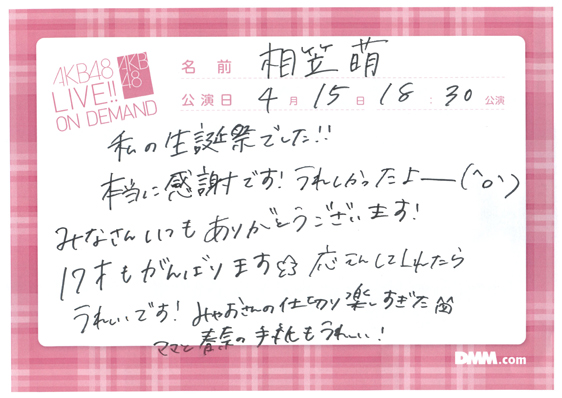 AKB48
LIVE!!
ON DEMAND
AKB
48
名前 相笠萌
公演日 4月15日18:30公演
私の生誕祭でした!!
本当に感謝です!うれしかったよー(^o^)
みなさんいつもありがとうございます!
17才もがんばります☆ 応えんしてくれたら
うれしいです!みゃおさんの仕切り楽しすぎた笛
ママと春奈の手紙もうれしい!
DMM.com